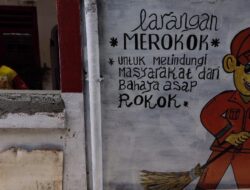 larangan
* MEROKOK *
* UNTUK MELINDUNGI
MASYARAKAT dari
BAHAYA ASAP
ROKOK.